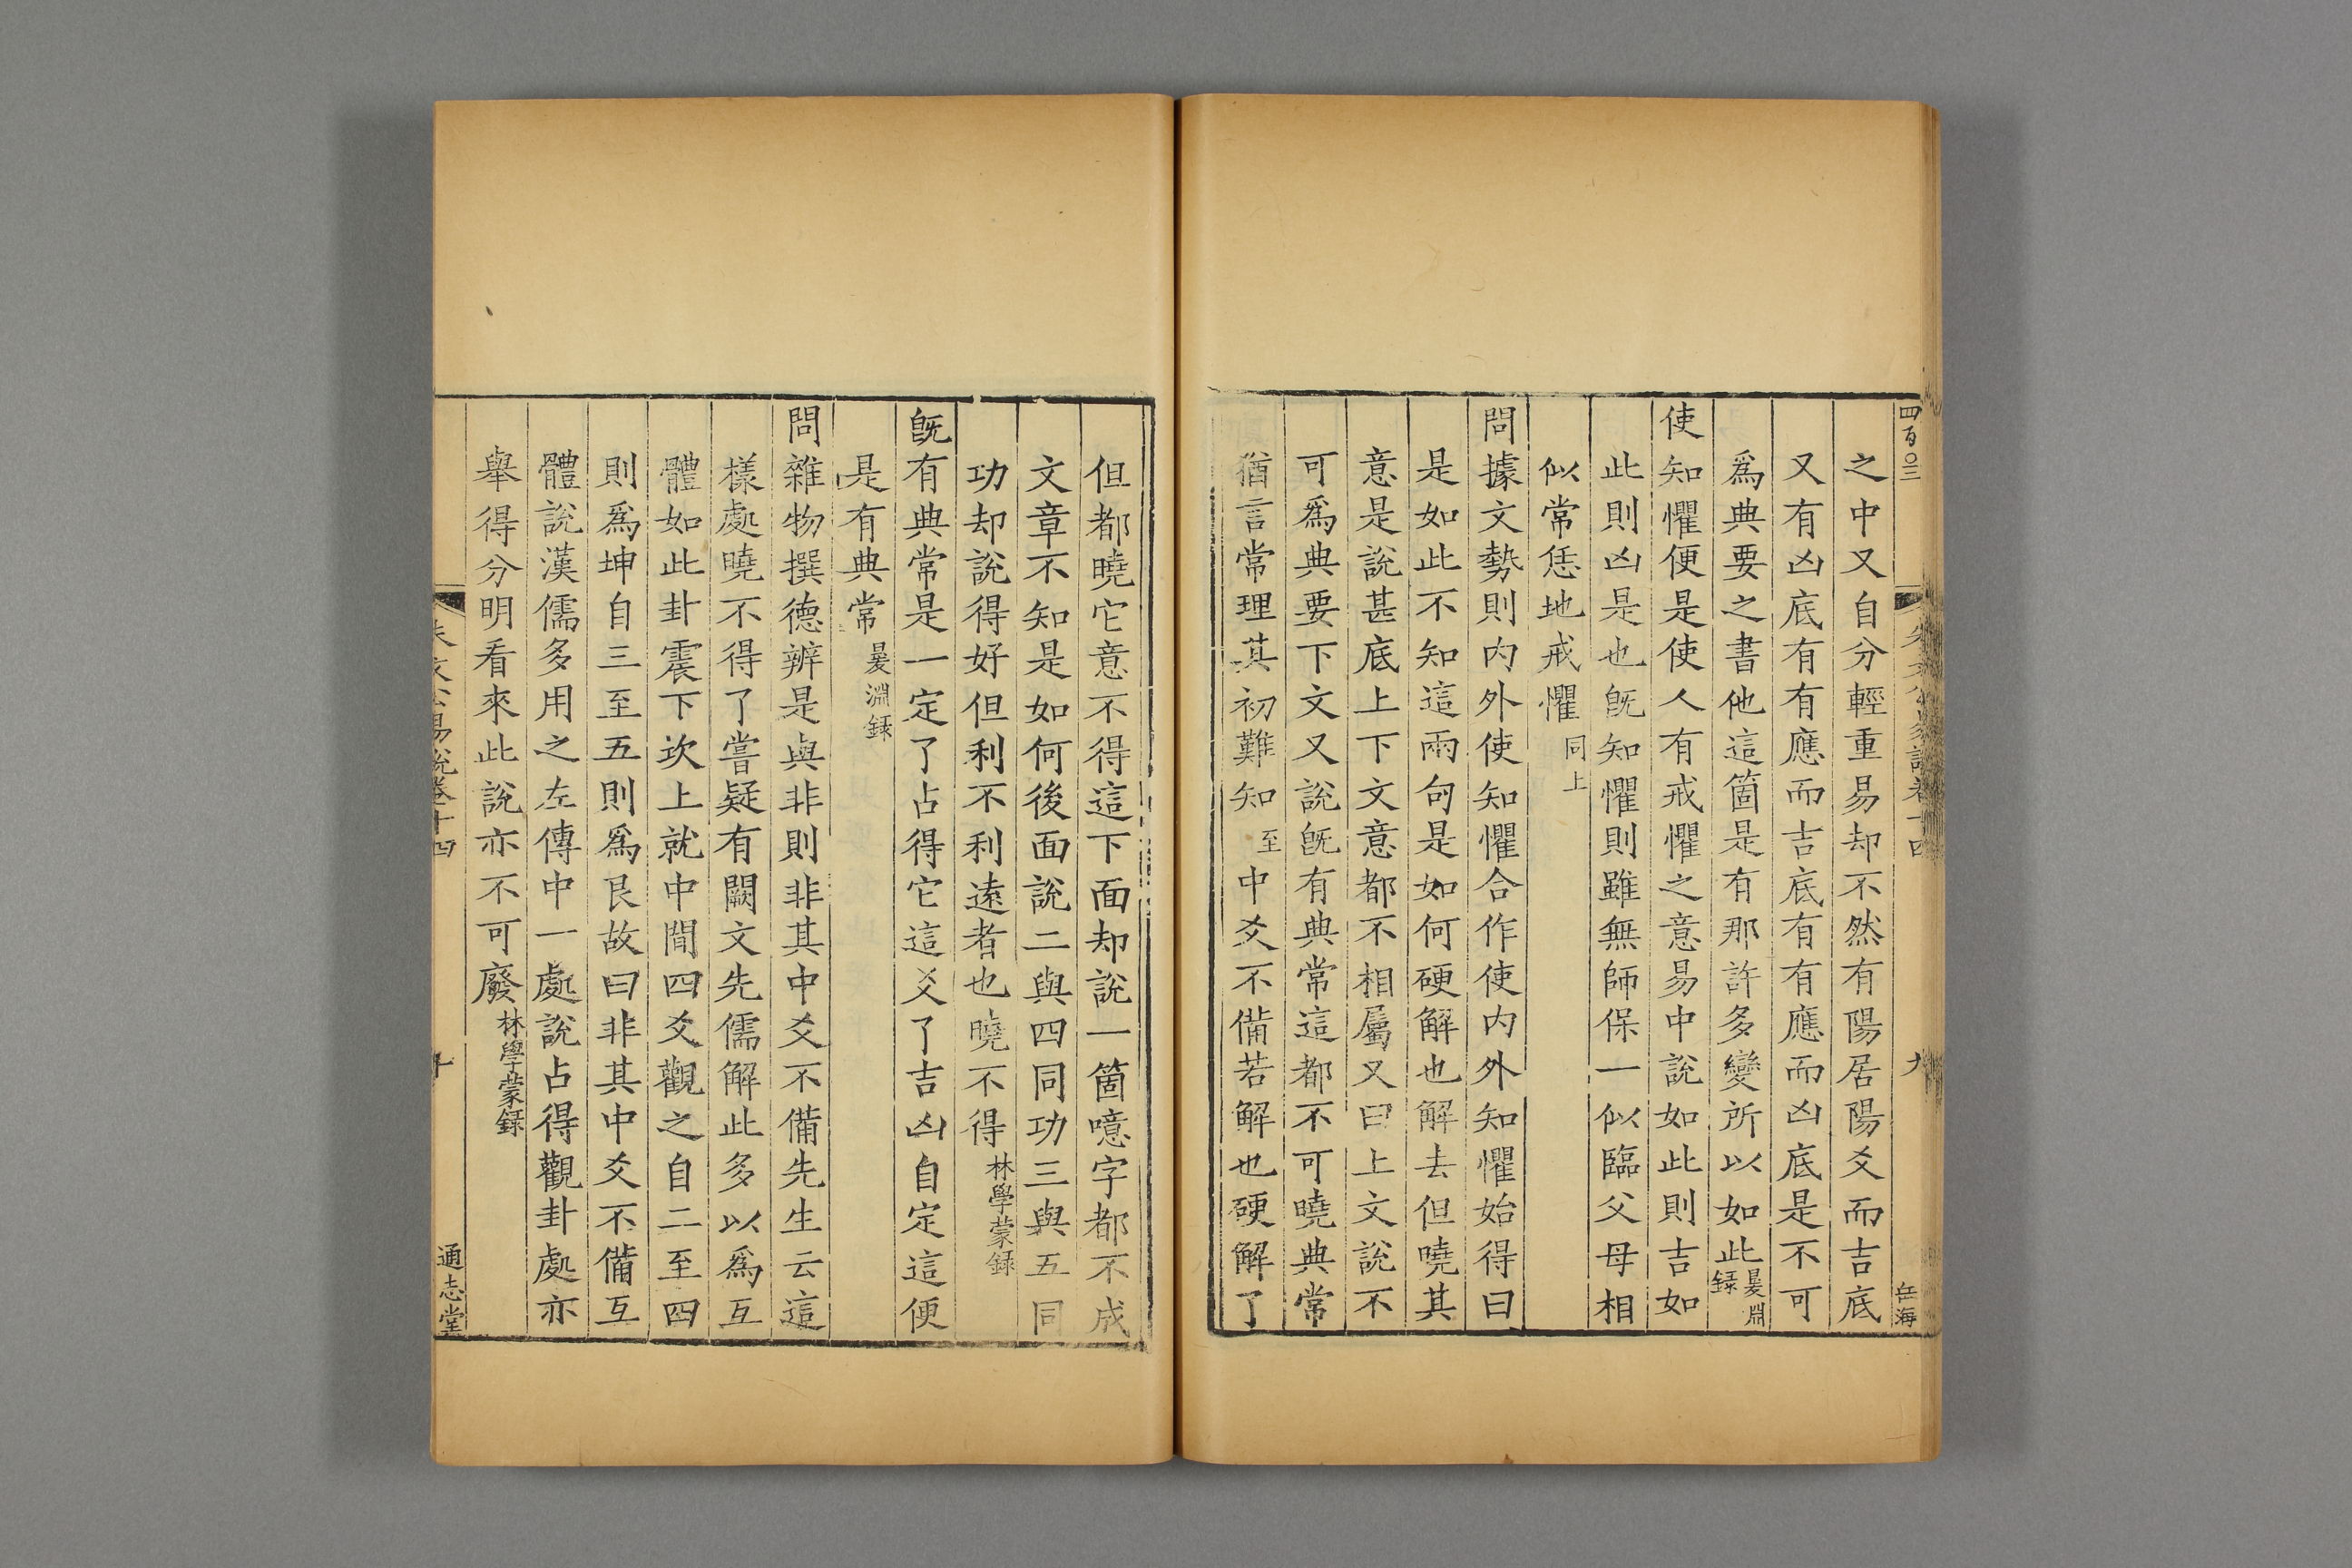 四百〇三
朱文公易說卷十四
九
岳海
之中又自分輕重易却不然有陽居陽爻而吉底
又有凶底有有應而吉底有有應而凶底是不可
爲典要之書他這箇是有那許多變所以如此㬊淵録
使知懼便是使人有戒懼之意易中說如此則吉如
此則凶是也旣知懼則雖無師保一似臨父母相
似常恁地戒懼同上
問據文勢則内外使知懼合作使内外知懼始得曰
是如此不知這兩句是如何硬解也解去但曉其
意是說甚底上下文意都不相屬又曰上文說不
可爲典要下文又說旣有典常這都不可曉典常
猶言常理其初難知至中爻不備若解也硬解了
但都曉它意不得這下面却說一箇噫字都不成
文章不知是如何後面說二與四同功三與五同
功却說得好但利不利遠者也曉不得林學蒙録
旣有典常是一定了占得它這爻了吉凶自定這便
是有典常㬊淵録
問雜物撰德辨是與非則非其中爻不備先生云這
樣處曉不得了嘗疑有闕文先儒解此多以爲互
體如此卦震下坎上就中間四爻觀之自二至四
則爲坤自三至五則爲艮故曰非其中爻不備互
體說漢儒多用之左傳中一處說占得觀卦處亦
舉得分明看來此說亦不可廢林學蒙録
朱文公易說卷十四
十
通志堂